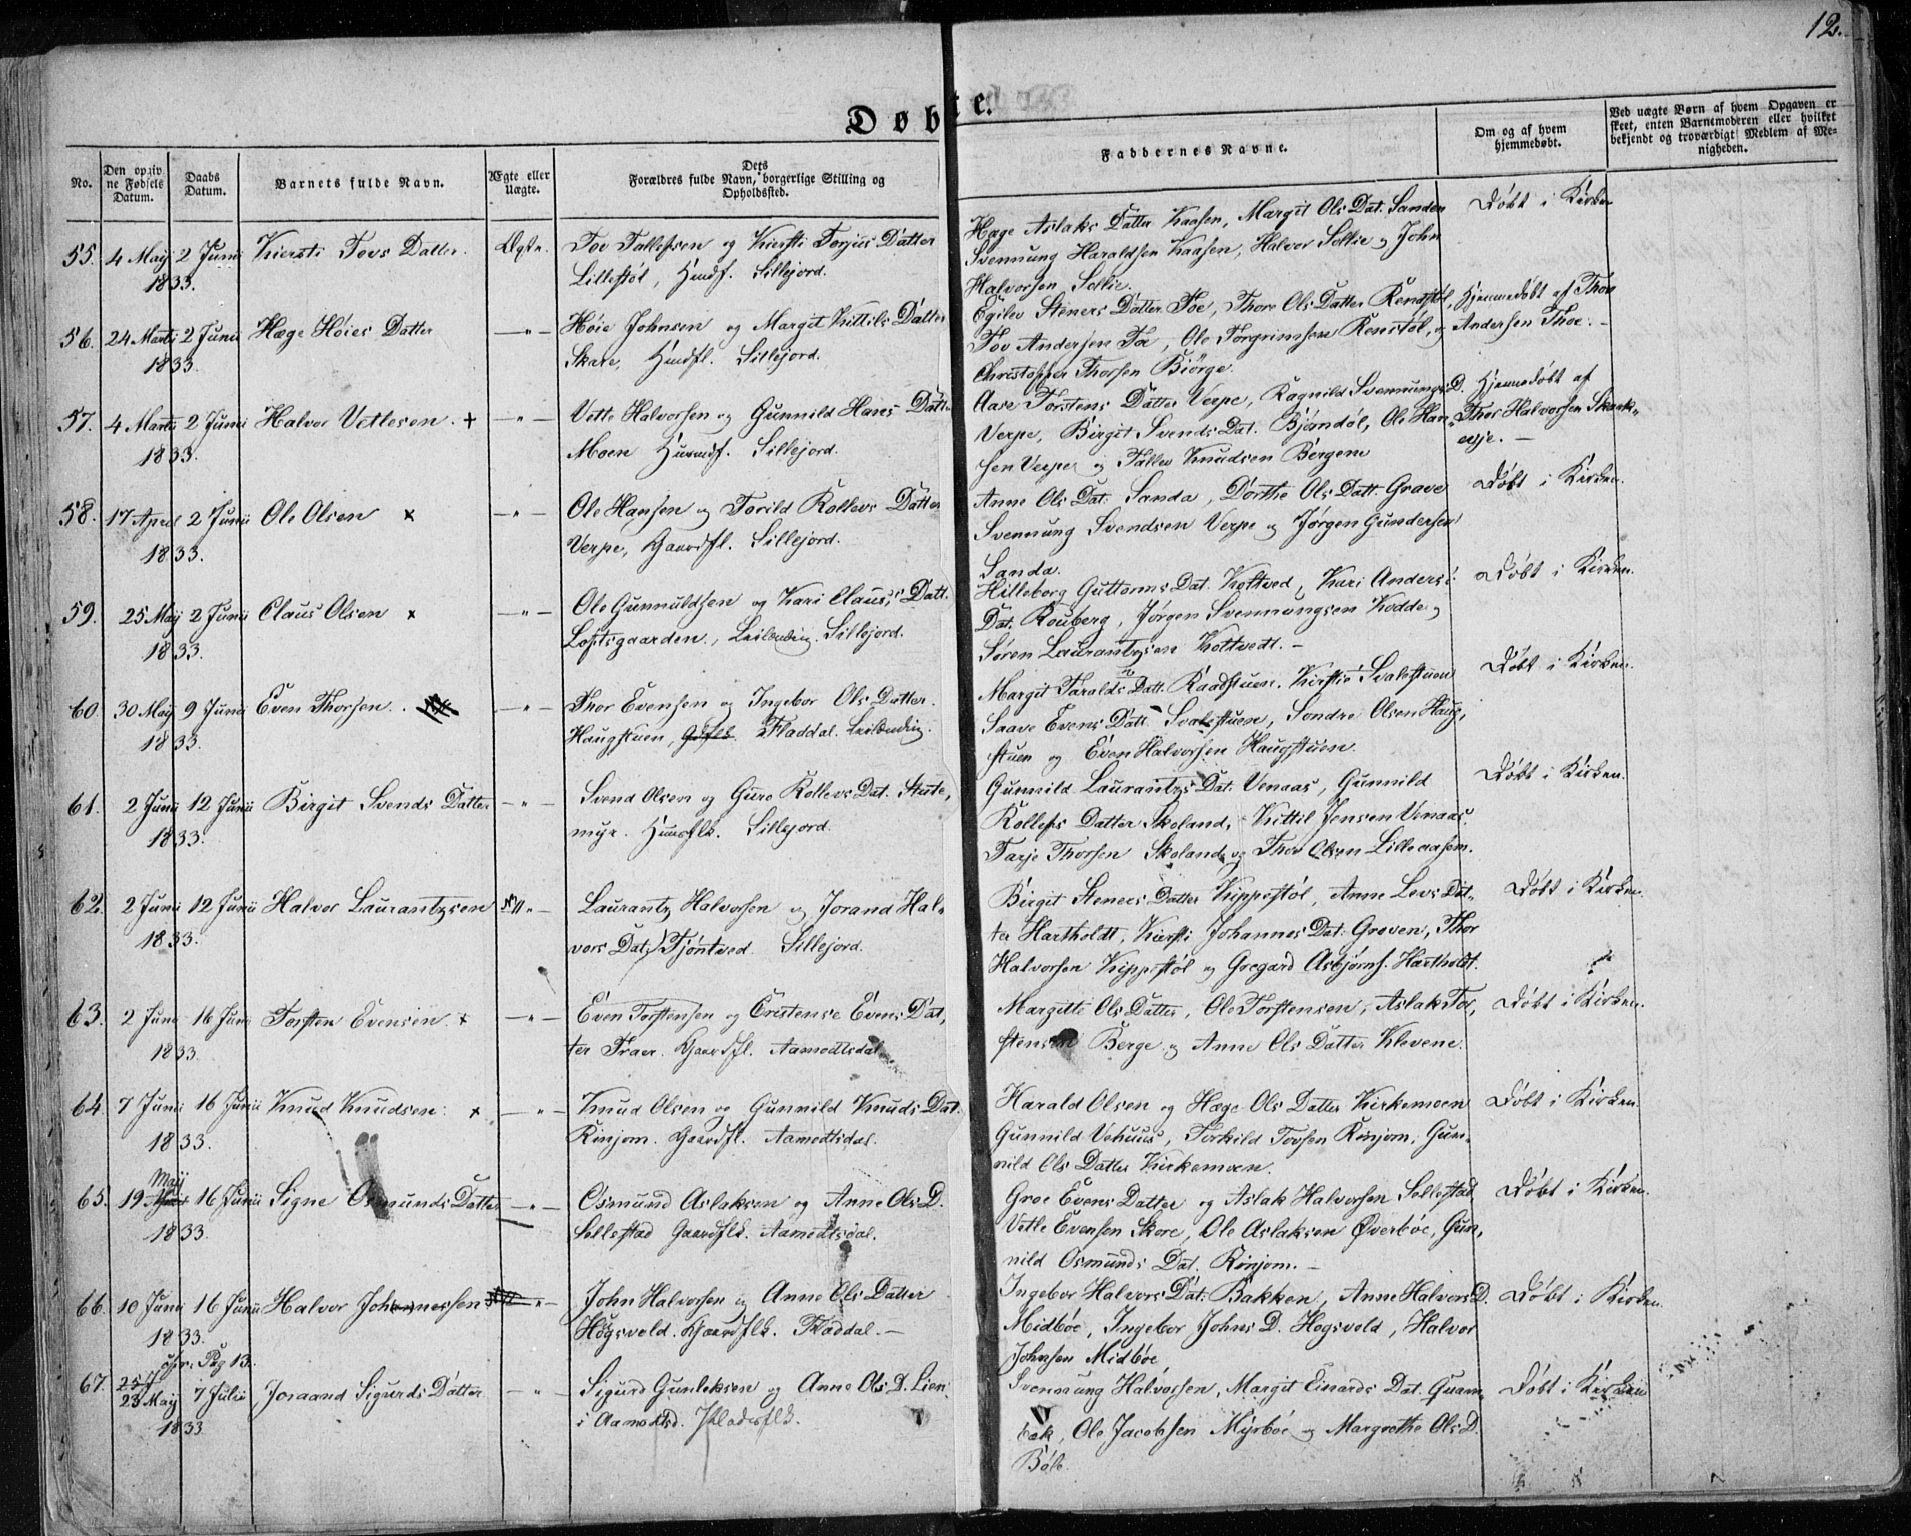 12.
Døbte.
No.
Den opgivne Fødsels Datum.
Daabs Datum.
Barnets fulde Navn.
Ægte eller Uægte.
Dets Forældres fulde Navn, borgerlige Stilling og Opholdssted.
Faddernes Navne.
Om og af hvem hjemmedøbt.
Ved uægte Børn af hvem Opgaven er skeet, enten Barnemoderen eller hvilket bekjendt og troværdigt Medlem af Menigheden.
55. 4 May 1833. 2 Junii Kiersti Tovs Datter. Ægte.
Tov Tallefsen og Kiersti Torjus Datter
Lillestøl, Huusf. Sillejord.
Hæge Aslaks Datter Kaasen, Margit Ols Dat. Sanden
Svennung Haraldsen Kaasen, Halvor Sollie og John
Halvorsen Sollie.
Døbt i Kirken
56. 24 Marti 1833. 2 Junii Hæge Høies Datter — " —
Høie Johnsen og Margit Kittils Datter
Skare, Huusfl. Sillejord.
Egilev Steners Datter Toe, Thore Ols Datter Rendstøl,
Tov Andersen Toe, Ole Torgrimsen Renstøl, og
Christopher Thorsen Biørge.
Hjemmedøbt af Thov
Andersen Thoe. —
57. 4 Marti 1833. 2 Junii Halvor Vetlesen. + — " —
Vetle Halvorsen og Gunnild Hans Datter
Moen Huusmf. Sillejord.
Aase Torstens Datter Verpe, Ragnild Svennungs D.
Verpe, Birgit Svends Dat. Bjørndal, Ole Han-
sen Verpe og Tallev Knudsen Bergene
Hjemmedøbt af
Thor Halvorsen Skark-
eeje. —
58. 17 April 1833. 2 Junii Ole Olsen x — " —
Ole Hansen og Torild Rollevs Datter
Verpe, Gaardfl. Sillejord.
Anne Ols Dat. Sanda, Dorthe Ols Datt. Grave
Svennung Svendsen Verpe og Jørgen Gundersen
Sanda.
Døbt i Kirken.
59. 25 May 1833. 2 Junii Claus Olsen x — " —
Ole Gunnuldsen og Kari Claus's Datt.
Loftsgaarden, Leilænding Sillejord.
Hilleborg Guttorms Dat. Kottved, Kari Anders's
Dat. Rouberg, Jørgen Svennungsen Kodde og
Søren Laurantzsen Kottvedt. —
Døbt i Kirken.
60. 30 May 1833. 9 Junii Even Thorsen. — " —
Thor Evensen og Ingebor Ols Datter.
Haugstuen, Fladdal. Leilænding.
Margit Taralds Datt. Raadstuen. Kirstie Svalestuen
Saave Evens Datt. Svalestuen, Sondre Olsen Haug-
stuen og Even Halvorsen Haugstuen.
Døbt i Kirken.
61. 2 Junii 1833. 12 Junii Birgit Svends Datter — " —
Svend Olsen og Guro Rollevs Dat. Stute-
myr. Huusflk. Sillejord.
Gunnild Laurantzs Dat. Venaas, Gunnild
Rollefs Datter Skoland, Kittil Jensen Venaas.
Tarje Thorsen Skoland og Thov Olsen Lilleaasem.
Døbt i Kirken.
62. 2 Junii 1833. 12 Junii Halvor Laurantzsen " —
Laurantz Halvorsen og Jorand Hal-
vors Dat. Tjøntved Sillejord.
Birgit Steners Datter Kippestøl, Anne Levs Dat-
ter Hartholdt, Kiersti Johannes Dat. Groven, Thor
Halvorsen Kippestøl og Gregard Asbjørns. Hartholdt.
Døbt i Kirken.
63. 2 Juni 1833. 16 Juni Torsten Evensen x — " —
Even Torstensen og Cristense Evens Dat-
ter Traer. Gaardfl. Aamodtsdal
Margitte Ols Datter, Ole Torstensen, Aslak Tor-
stensen Berge og Anne Ols Datter Klevene.
Døbt i Kirken.
64. 7 Junii 1833. 16 Junii Knud Knudsen. x — " —
Knud Olsen og Gunnild Knuds Dat.
Rinjom. Gaardfl. Aamodtsdal.
Harald Olsen og Hæge Ols Datter Kirkemoen
Gunnild Vehuus, Torkild Tovsen Rinjom, Gun-
nild Ols Datter Kirkemoen.
Døbt i Kirken.
65. 19 May 1833. 16 Junii Signe Osmunds Datter — " —
Osmund Aslaksen og Anne Ols D.
Sellestad Gaardflk. Aamodtsdal.
Groe Evens Datter og Aslak Halvorsen Sellestad
Vetle Evensen Skore, Ole Aslaksen Øverbøe, Gun-
nild Osmunds Dat. Rinjom. —
Døbt i Kirken.
66. 10 Junii 1833. 16 Junii Halvor Johannessen " —
John Halvorsen og Anne Ols Datter
Høgsveld. Gaardflk. Fladdal. —
Ingebor Halvors Dat. Bakken, Anne Halvors D.
Midbøe, Ingebor Johns D. Hogsveld, Halvor
Johnsen Midbøe
Døbt i Kirken.
cfr. Pag 13.
67. 23 May 1833 7 Julii Joraand Sigurds Datter — " —
Sigurd Gunleksen og Anne Ols D. Lien
i Aamodtsd.
Svennung Halvorsen, Margit Einards Dat. Quam-
bæk, Ole Jacobsen Myrbøe og Margrethe Ols D.
Bøle.
Døbt i Kirken